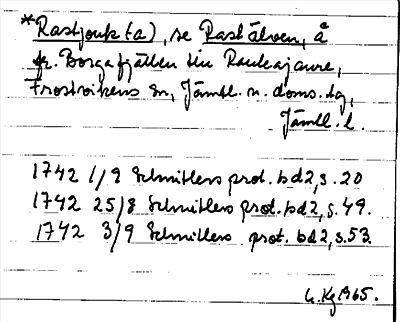 *Rastjonk(a), se Rastälven, å
fr. Borgafjällen till Raukajaure,
Frostvikens sn, Jämtl. n. doms.tg,
Jämtl. l.
1742 1/9 Schnitlers prot. bd 2, s. 20
1742 25/8 Schnitlers prot. bd 2, s. 49.
1742 3/9 Schnitlers prot. bd 2, s. 53.
1965.